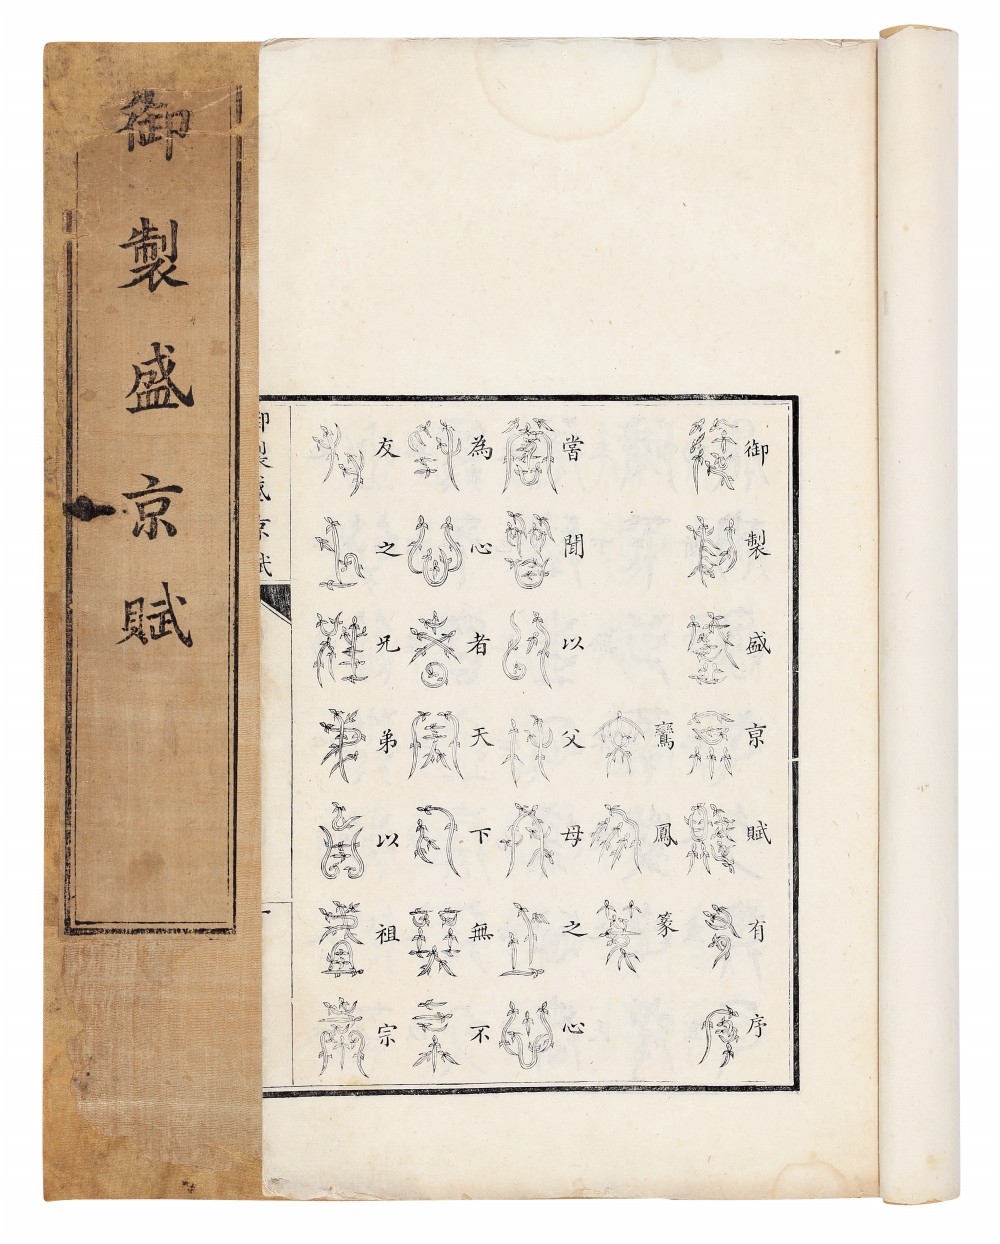 御製盛京賦
御製盛京賦有序
鸞鳳篆
嘗聞以父母之心
為心者天下無不
友之兄弟以祖宗
御製盛京賦